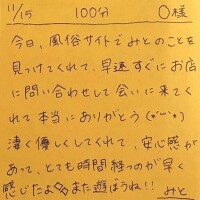 11/15 100分 O様
今日、風俗サイトでみとのことを
見つけてくれて、早速すぐにお店
に問い合わせして会いに来てく
れて本当にありがとう(*'ω'*)
凄く優しくしてくれて、安心感が
あって、とても時間経つのが早く
感じたよ また遊ぼうね!! みと